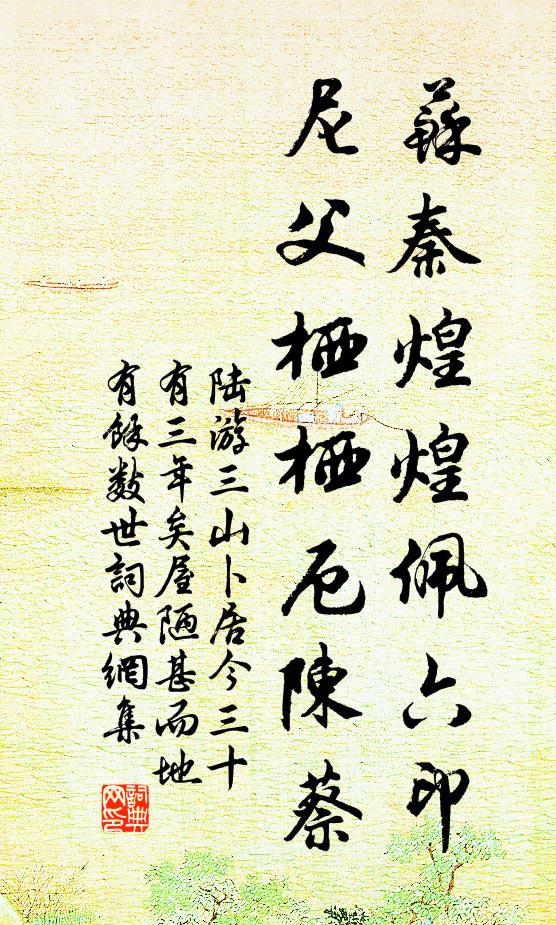 蘇秦煌煌佩六印
尼父栖栖厄陳蔡
陆游三山卜居今三十
有三年矣屋陋甚而地
有餘数世詞典網集
詞典
网印